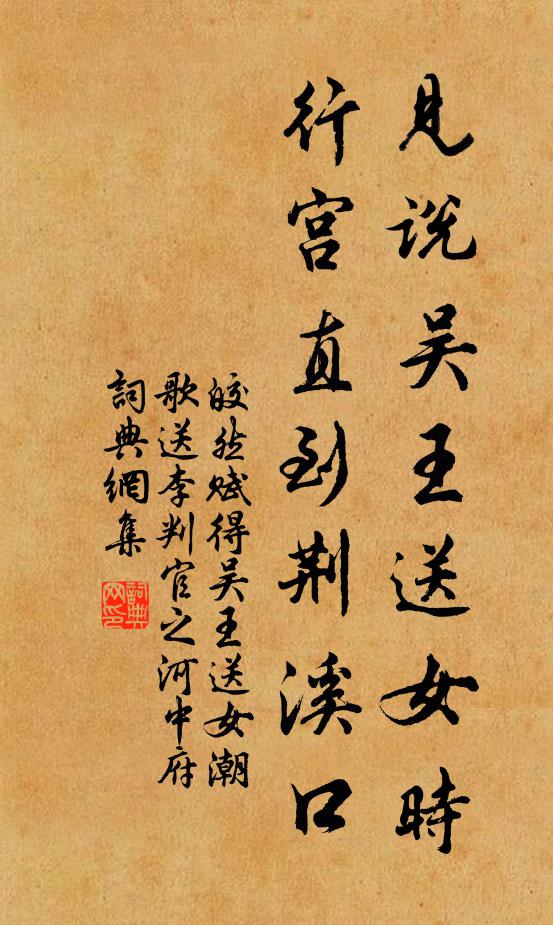 見説吳王送女時
行宮直到荆溪口
皎然賦得吳王送女潮
歌送李判官之河中府
詞典網集
詞典网印